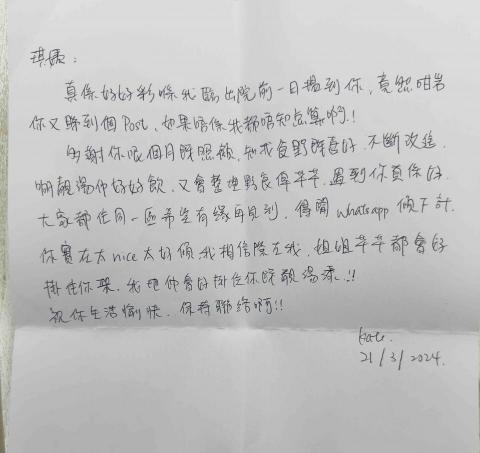 琪姨:
真係好好彩喺我臨出院前一日搵到你,竟然咁岩
你又睇到個Post,如果唔係我都唔知点算啊!!
多謝你呢個月既照顧,知我食野既喜好,不斷改進,
啲靚湯仲好好飲,又會整埋野食俾芊芊,遇到你真係好.
大家都住同一區希望有緣再見到,得閒whatsapp傾下計.
你實在太nice太好傾我相信除左我,姐姐芊芊都會好
掛住你㗎,我哋仲會好掛住你既靚湯添!!
祝你生活愉快,保持聯絡啊!!
Kate
21/3/2024.